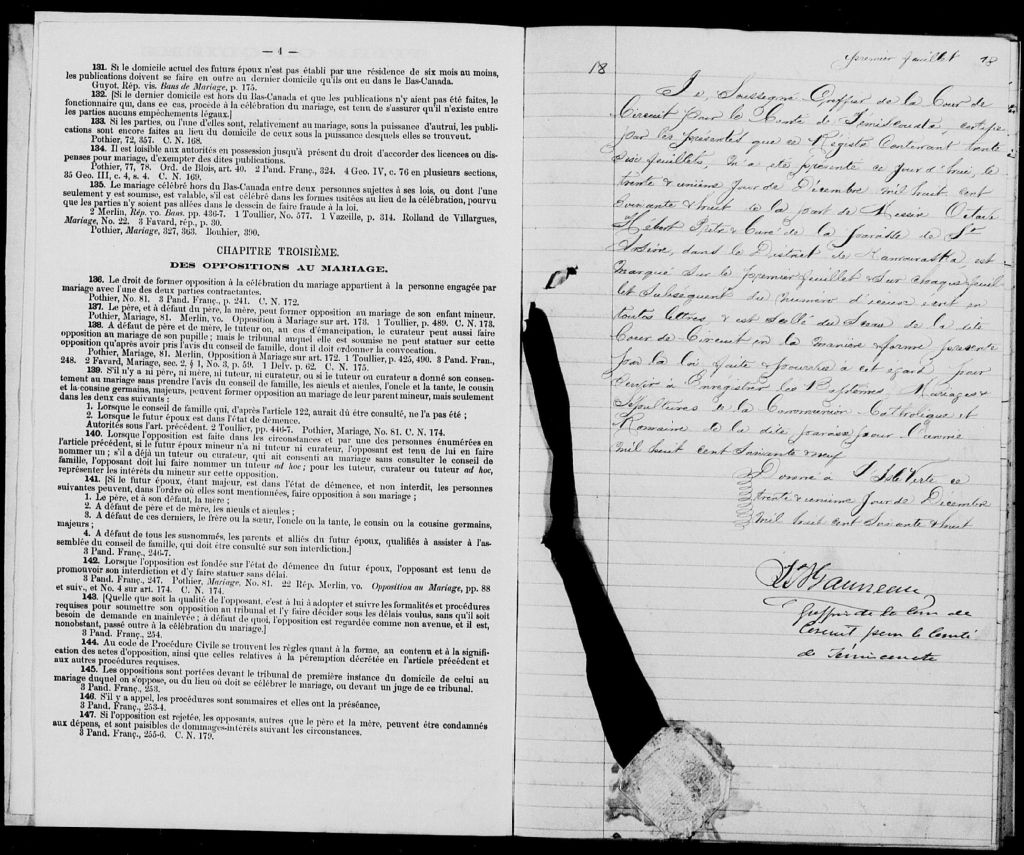 — 4 —
131. Si le domicile actuel des futurs époux n'est pas établi par une résidence de six mois au moins,
les publications doivent se faire en outre au dernier domicile qu'ils ont eu dans le Bas-Canada.
Guyot. Rép. vis. Bans de Mariage, p. 175.
132. [Si le dernier domicile est hors du Bas-Canada et que les publications n'y aient pas été faites, le
fonctionnaire qui, dans ce cas, procède à la célébration du mariage, est tenu de s'assurer qu'il n'existe entre
les parties aucuns empêchements légaux.]
133. Si les parties, ou l'une d'elles sont, relativement au mariage, sous la puissance d'autrui, les publi-
cations sont encore faites au lieu du domicile de ceux sous la puissance desquels elles se trouvent.
Pothier, 72, 357. C. N. 168.
134. Il est loisible aux autorités en possession jusqu'à présent du droit d'accorder des licences ou dis-
penses pour mariage, d'exempter des dites publications.
Pothier, 77, 78. Ord. de Blois, art. 40. 2 Pand. Franç., 324. 4 Geo. IV, c. 76 en plusieurs sections,
35 Geo. III, c. 4, s. 4. C. N. 169.
135. Le mariage célébré hors du Bas-Canada entre deux personnes sujettes à ses lois, ou dont l'une
seulement y est soumise, est valable, s'il est célébré dans les formes usitées au lieu de la célébration, pourvu
que les parties n'y soient pas allées dans le dessein de faire fraude à la loi.
2 Merlin, Rép. vo. Bans. pp. 436-7. 1 Toullier, No. 577. 1 Vazeille, p. 314. Rolland de Villargues,
Mariage, No. 22. 3 Favard, rép., p. 30.
Pothier, Mariage, 327, 363. Bouhier, 390.
CHAPITRE TROISIÈME.
DES OPPOSITIONS AU MARIAGE.
136. Le droit de former opposition à la célébration du mariage appartient à la personne engagée par
mariage avec l'une des deux parties contractantes.
Pothier, No. 81. 3 Pand. Franç., p. 241. C. N. 172.
137. Le père, et à défaut du père, la mère, peut former opposition au mariage de son enfant mineur.
Pothier, Mariage, 81. Merlin, vo. Opposition à Mariage sur art. 173. 1 Toullier, p. 489. C. N. 173.
138. A défaut de père et de mère, le tuteur ou, au cas d'émancipation, le curateur peut aussi faire
opposition au mariage de son pupille; mais le tribunal auquel elle est soumise ne peut statuer sur cette
opposition qu'après avoir pris l'avis du conseil de famille, dont il doit ordonner la convocation.
Pothier, Mariage, 81. Merlin, Opposition à Mariage sur art. 172. 1 Toullier, p. 425, 490. 3 Pand. Fran.,
248. 2 Favard, Mariage, sec. 2, § 1, No. 3, p. 59. 1 Delv. p. 62. C. N. 175.
139. S'il n'y a ni père, ni mère, ni tuteur, ni curateur, ou si le tuteur ou curateur a donné son consen-
tement au mariage sans prendre l'avis du conseil de famille, les aieuls et aieules, l'oncle et la tante, le cousin
et la cousine germains, majeurs, peuvent former opposition au mariage de leur parent mineur, mais seulement
dans les deux cas suivants:
1. Lorsque le conseil de famille qui, d'après l'article 122, aurait dû être consulté, ne l'a pas été;
2. Lorsque le futur époux est dans l'état de démence.
Autorités sous l'art. précédent. 2 Toullier, pp. 446-7. Pothier, Mariage, No. 81. C. N. 174.
140. Lorsque l'opposition est faite dans les circonstances et par une des personnes énumérées en
l'article précédent, si le futur époux mineur n'a ni tuteur ni curateur, l'opposant est tenu de lui en faire
nommer un; s'il a déjà un tuteur ou curateur, qui ait consenti au mariage sans consulter le conseil de
famille, l'opposant doit lui faire nommer un tuteur ad hoc; pour les tuteur, curateur ou tuteur ad hoc,
représenter les intérêts du mineur sur cette opposition.
141. [Si le futur époux, étant majeur, est dans l'état de démence, et non interdit, les personnes
suivantes peuvent, dans l'ordre où elles sont mentionnées, faire opposition à son mariage;
1. Le père, et à son défaut, la mère;
2. A défaut de père et de mère, les aieuls et aieules;
3. A défaut de ces derniers, le frère ou la sœur, l'oncle ou la tante, le cousin ou la cousine germains,
majeurs;
4. A défaut de tous les susnommés, les parents et alliés du futur époux, qualifiés à assister à l'as-
semblée du conseil de famille, qui doit être consulté sur son interdiction.]
3 Pand. Franç., 246-7.
142. Lorsque l'opposition est fondée sur l'état de démence du futur époux, l'opposant est tenu de
promouvoir son interdiction et d'y faire statuer sans délai.
3 Pand. Franç., 247. Pothier, Mariage, No. 81. 22 Rép. Merlin, vo. Opposition au Mariage, pp. 88
et suiv., et No. 4 sur art. 174. C. N. 174.
143. [Quelle que soit la qualité de l'opposant, c'est à lui à adopter et suivre les formalités et procédures
requises pour soumettre son opposition au tribunal et l'y faire décider sous les délais voulus, sans qu'il soit
besoin de demande en mainlevée; à défaut de quoi, l'opposition est regardée comme non avenue, et il est,
nonobstant, passé outre à la célébration du mariage.]
3 Pand. Franç., 254.
144. Au code de Procédure Civile se trouvent les règles quant à la forme, au contenu et à la signifi-
cation des actes d'opposition, ainsi que celles relatives à la péremption décrétée en l'article précédent et
aux autres procédures requises.
145. Les oppositions sont portées devant le tribunal de première instance du domicile de celui au
mariage duquel on s'oppose, ou du lieu où doit se célébrer le mariage, ou devant un juge de ce tribunal.
3 Pand. Franç., 253.
146. S'il y a appel, les procédures sont sommaires et elles ont la préséance,
3 Pand. Franç., 253-4.
147. Si l'opposition est rejetée, les opposants, autres que le père et la mère, peuvent être condamnés
aux dépens, et sont paisibles de dommages-intérêts suivant les circonstances.
3 Pand. Franç., 255-6. C. N. 179.
18
premier feuillet
Je, Soussigné Greffier de la Cour de
Circuit pour le Comté de Témiscouata, certifie
par les présentes que ce Registre Contenant trente
feuillets, m'a été présenté ce jour d'hui, le
trente & unième Jour de Décembre mil huit cent
soixante & huit de la part de Messire Octave
Hébert Prêtre & Curé de la paroisse de St
Arsène, dans le District de Kamouraska, est
marqué sur le premier feuillet & sur chaque feuil
let subsequent du numéro d'iceux écrit en
toutes lettres, & est scellé du Sceau de la dite
Cour de Circuit en la manière & forme presente
par la loi faite & pourvue a cet egard pour
Servir a Enregistrer les Baptêmes, Mariages &
Sépultures de la Communion Catholique et
Romaine de la dite paroisse pour l'année
mil huit cent soixante & neuf
Donné a l'Isle Verte ce
trente & unième Jour de Décembre
mil huit cent Soixante & huit
Greffier de la Cour de
Circuit pour le Comté
de Témiscouata